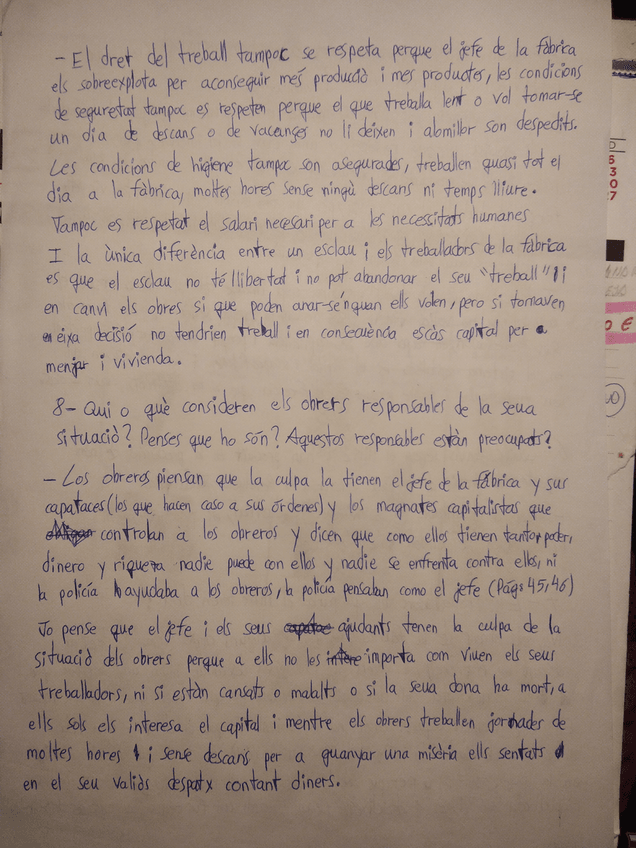 - El dret del treball tampoc se respeta perque el jefe de la fàbrica
els sobreexplota per aconseguir més producciò i mes productes, les condicions
de seguretat tampoc es respeten perque el que treballa lent o vol tomar-se
un dia de descans o de vacances no li deixen i al omillor son despedits.
Les condicions de higiene tampoc son asegurades, treballen quasi tot el
dia a la fàbrica, moltes hores sense ningù descans ni temps lliure.
Tampoc es respetat el salari necesari per a les necessitats humanes
I la ùnica diferència entre un esclau i els treballadors de la fàbrica
es que el esclau no té llibertat i no pot abandonar el seu "treball" i
en canvi els obres si que poden anar-se'n quan ells volen, pero si tomaven
eixa decisiò no tendrien treball i en conseqüència escàs capital per a
menjar i vivienda.
8- Qui o què consideren els obrers responsables de la seua
situaciò? Penses que ho són? Aquestos responsables estàn preocupats?
- Los obreros piensan que la culpa la tienen el jefe de la fábrica y sus
capataces (los que hacen caso a sus órdenes) y los magnates capitalistas que
controlan a los obreros y dicen que como ellos tienen tanto poder,
dinero y riqueza nadie puede con ellos y nadie se enfrenta contra ellos, ni
la policía ayudaba a los obreros, la policía pensaban como el jefe (Págs 45,46)
Jo pense que el jefe i els seus ajudants tenen la culpa de la
situaciò dels obrers perque a ells no les importa com viuen els seus
treballadors, ni si estàn cansats o malalts o si la seua dona ha mort, a
ells sols els interesa el capital i mentre els obrers treballen jornades de
moltes hores i sense descans per a guanyar una misèria ells sentats
en el seu valiòs despatx contant diners.